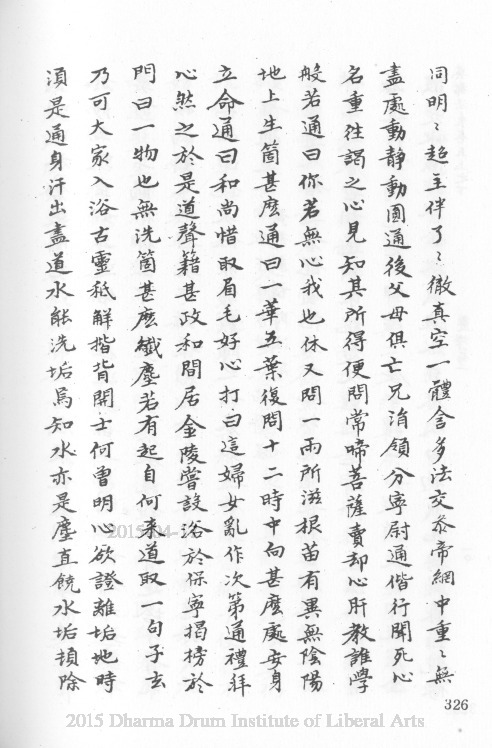 同明〻超主伴了〻徹真空一體含多法交叅帝網中重〻無
盡處動静動圓通後父母俱亡兄涓領分寧尉通偕行聞死心
名重往謁之心見知其所得便問常啼菩薩賣却心肝教誰學
般若通曰你若無心我也休又問一雨所滋根苗有異無陰陽
地上生箇甚麽通曰一華五葉復問十二時中向甚麽處安身
立命通曰和尚惜取眉毛好心打曰這婦女亂作次第通禮拜
心然之於是道聲籍甚政和間居金陵嘗設浴於保寧揭榜於
門曰一物也無洗箇甚麽纖塵若有起自何来道取一句子玄
乃可大家入浴古靈秪解揩背開士何曾明心欲證離垢地時
湏是通身汗出盡道水能洗垢焉知水亦是塵直饒水垢頓除
326
2015 Dharma Drum Institute of Liberal Arts